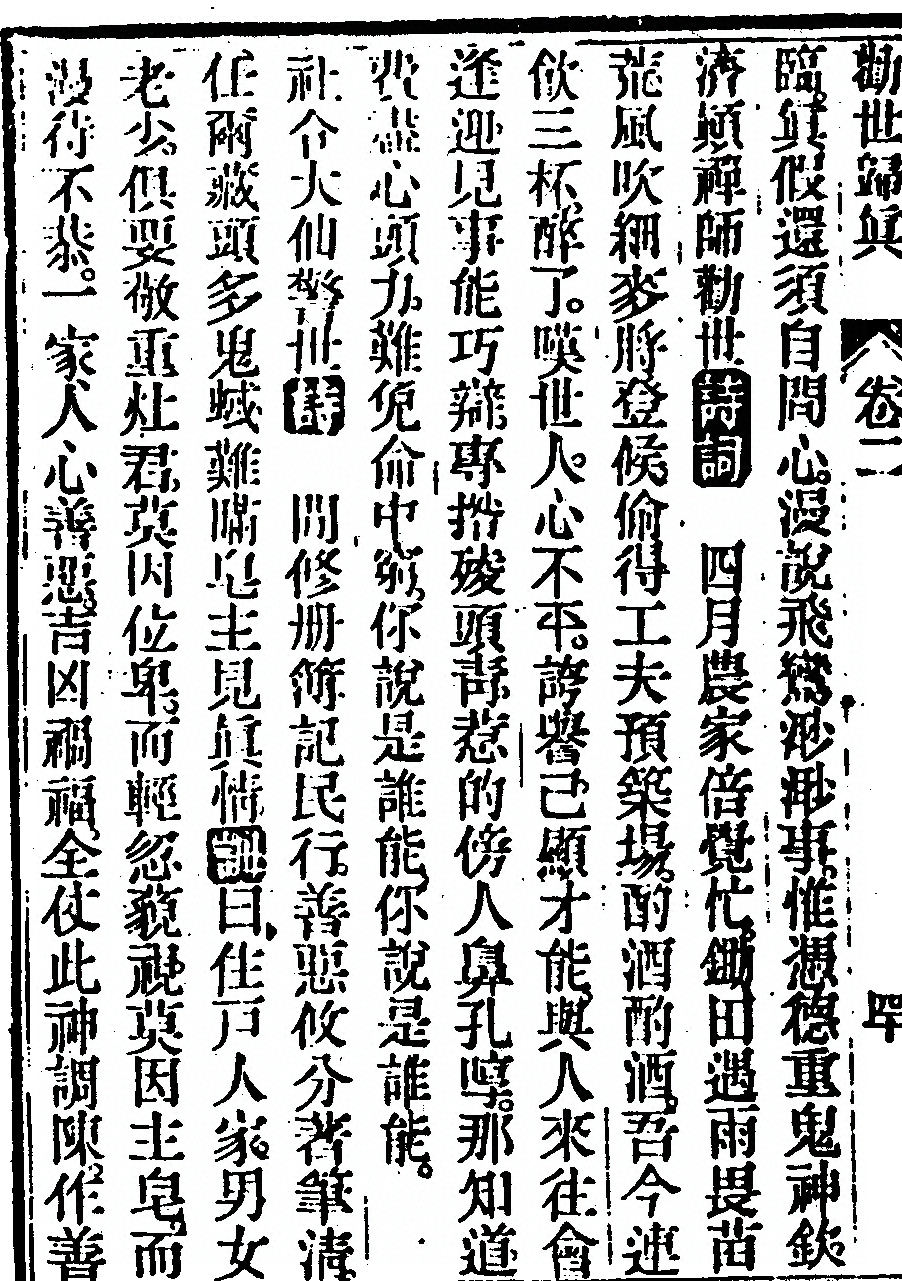 勸世歸眞 卷二 四
臨眞假還須自問心漫說飛鸞渺渺事惟憑德重鬼神欽
濟顚禪師勸世詩詞 四月農家倍覺忙鋤田遇雨畏苗
荒風吹細麥將登候偷得工夫預築場酌酒酌酒吾今連
飲三杯醉了嘆世人心不平誇譽己顯才能與人來往會
逢迎見事能巧辯專揩殘頭靑惹的傍人鼻孔哼那知道
費盡心頭力難免命中窮你說是誰能你說是誰能
社令大仙警世詩 閒修册簿記民行善惡攸分著筆淸
任爾藏頭多鬼蜮難瞞皂主見眞情訓曰住戶人家男女
老少俱要敬重灶君莫因位卑而輕忽藐視莫因主皂而
漫待不恭一家人心善惡吉凶禍福全仗此神調陳作善